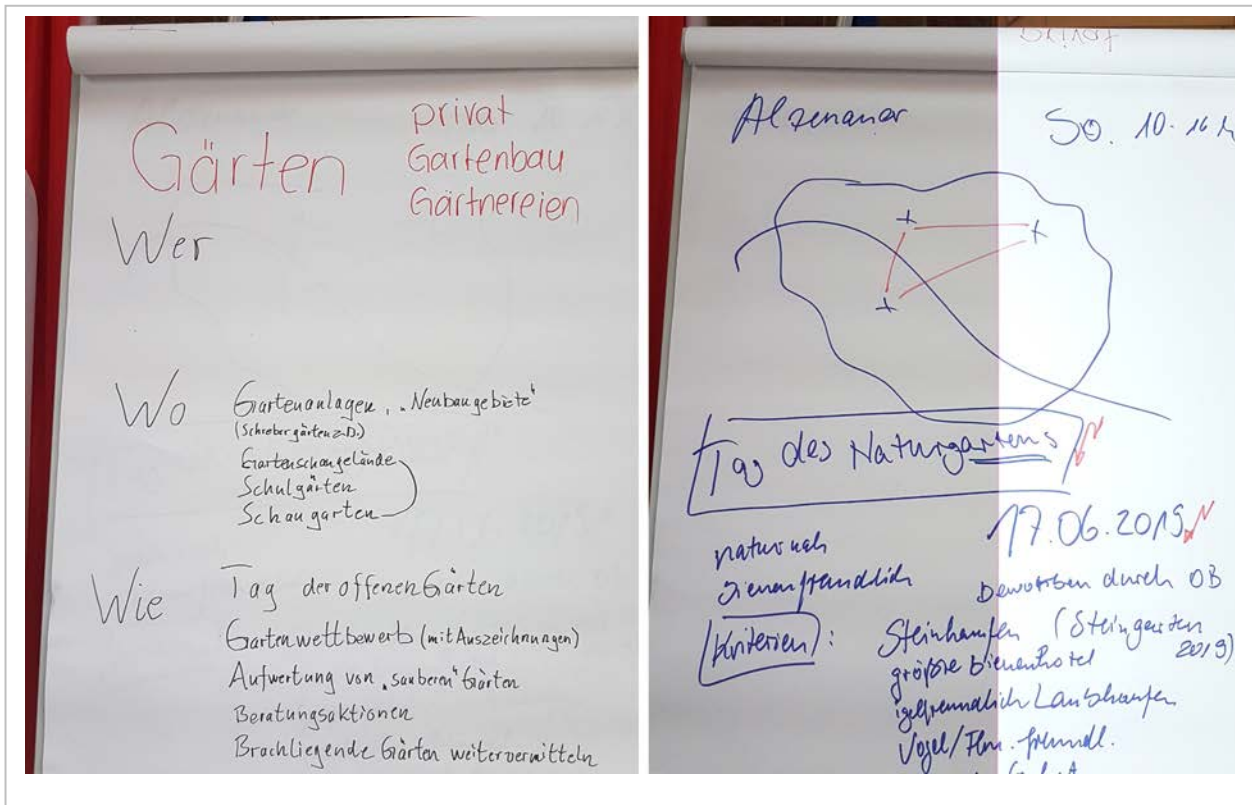 Gärten
privat
Gartenbau
Gärtnereien
Wer
Wo
Gartenanlagen, „Neubaugebiete"
(Schrebergärten z.B.)
Gartenschaugelände
Schulgärten
Schaugarten
Wie
Tag der offenen Gärten
Gartenwettbewerb (mit Auszeichnungen)
Aufwertung von „sauberen" Gärten
Beratungsaktionen
Brachliegende Gärten weitervermitteln
privat
Alzenauer
So. 10-16 h
Tag des Naturgartens
17.06.2019
naturnah
bienenfreundlich
beworben durch OB
Kriterien:
Steinhaufen (Steingarten 2019)
größte Bienenhotel
igelfreundlich Laubhaufen
Vogel/ freundl.